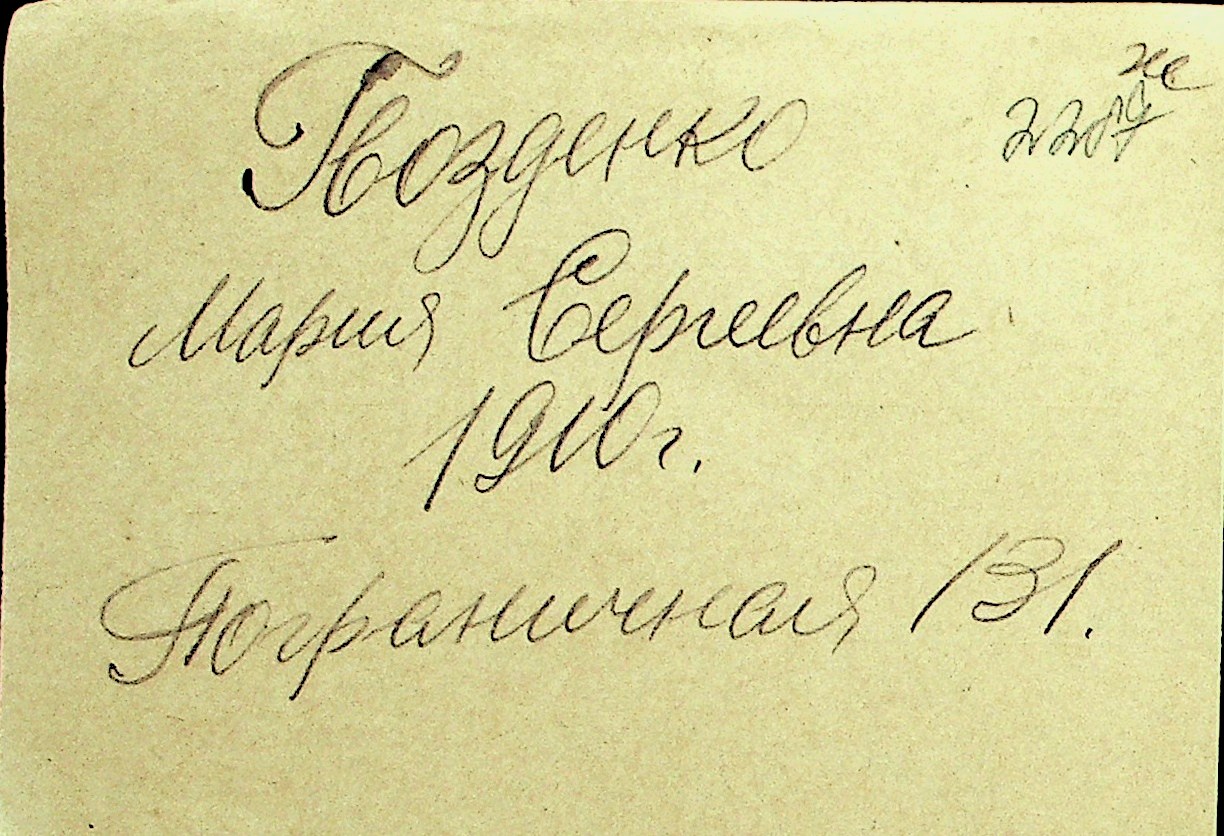 Гвозденко
Мария Сергеевна
1910г.
Пограничная 131.